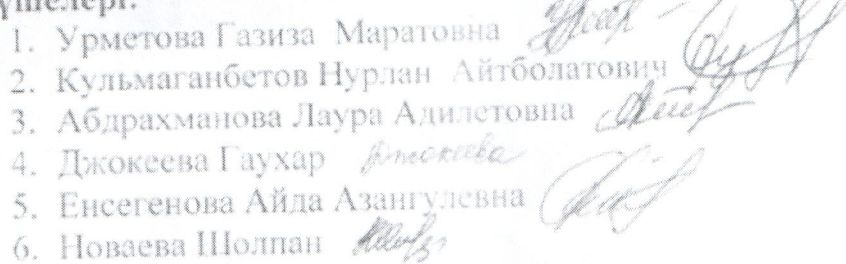 мүшелері:
1. Урметова Газиза Маратовна
2. Кульмаганбетов Нурлан Айтболатович
3. Абдрахманова Лаура Адилетовна
4. Джокеева Гаухар Джокеева
5. Енсегенова Айда Азангулевна
6. Новаева Шолпан